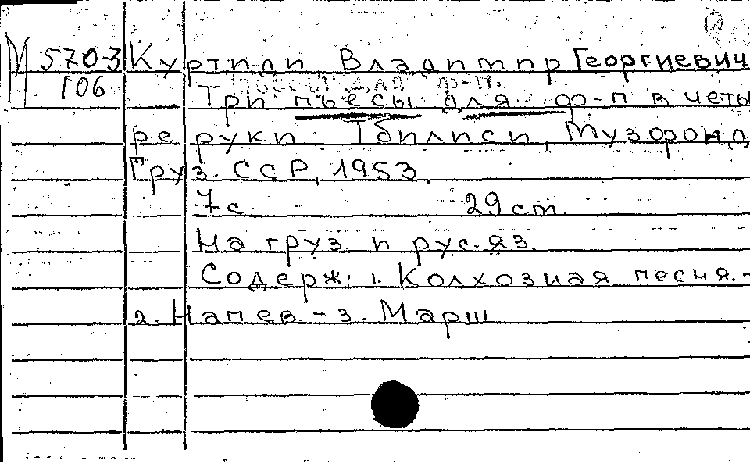 М 5703 Куртиди, Владимир Георгиевич
106 Три пьесы для ф-п в четы
ре руки. Тбилиси, Музфонд
Груз. ССР, 1953.
7 с 29 ст.
На груз и рус. яз.
Содерж: 1. Колхозная песня. -
2. Напев. - 3. Марш